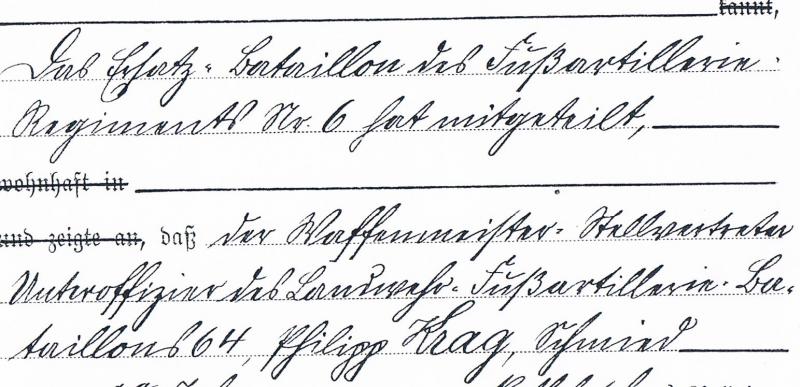 kannt,
Das Ersatz-Bataillon des Fußartillerie-
Regiments Nr. 6 hat mitgeteilt,
wohnhaft in
und zeigte an, daß der Waffenmeister-Stellvertreter
Unteroffizier des Landwehr-Fußartillerie-Ba-
taillons 64, Philipp Krag, Schmied